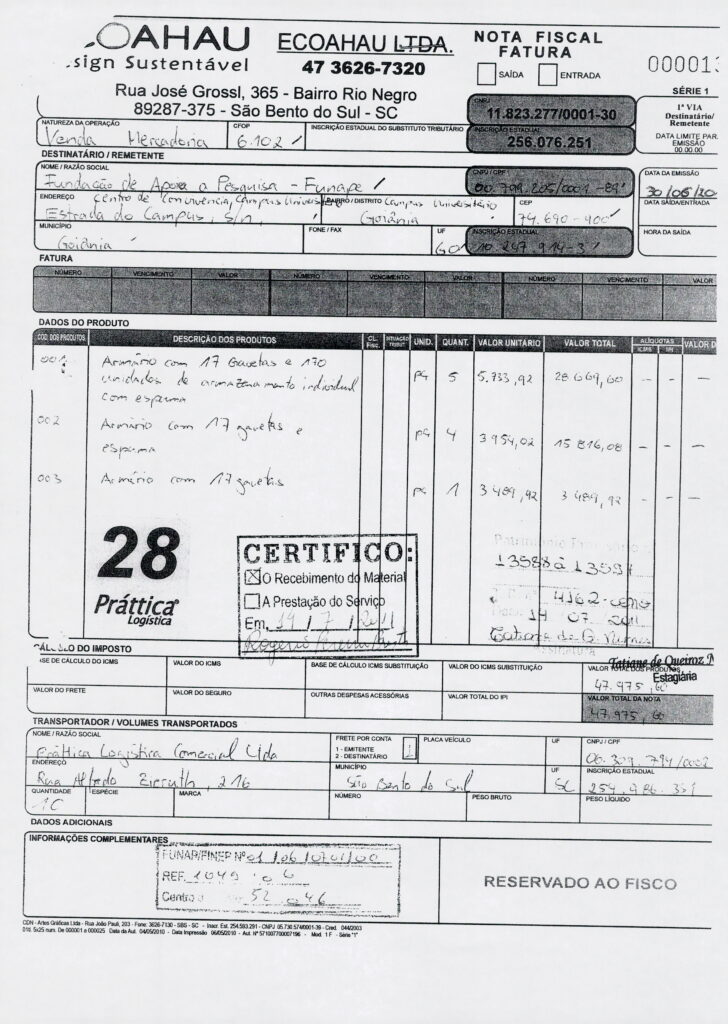 OAHAU
sign Sustentável
ECOAHAU LTDA.
47 3626-7320
Rua José Grossl, 365 - Bairro Rio Negro
89287-375 - São Bento do Sul - SC
NOTA FISCAL
FATURA
SAÍDA ENTRADA
SÉRIE 1
1ª VIA
Destinatário/
Remetente
DATA LIMITE PAR
EMISSÃO
00.00.00
CNPJ
11.823.277/0001-30
INSCRIÇÃO ESTADUAL
256.076.251
NATUREZA DA OPERAÇÃO
Venda Mercadoria
CFOP
6.102
INSCRIÇÃO ESTADUAL DO SUBSTITUTO TRIBUTÁRIO
DESTINATÁRIO / REMETENTE
NOME / RAZÃO SOCIAL
Fundação de Apoio a Pesquisa - Funape
CNPJ / CPF
00.799.205/0001-89
DATA DA EMISSÃO
30/05/20
ENDEREÇO
Centro de Convivencia, Campus Univers
Estrada do Campus, s/n
BAIRRO / DISTRITO
Campus Universitário
Goiânia
CEP
74.690-900
DATA SAÍDA/ENTRADA
MUNICÍPIO
Goiânia
FONE / FAX
UF
GO
INSCRIÇÃO ESTADUAL
10.247.914-3
HORA DA SAÍDA
FATURA
NÚMERO VENCIMENTO VALOR NÚMERO VENCIMENTO VALOR NÚMERO VENCIMENTO VALOR
DADOS DO PRODUTO
CÓD. DOS PRODUTOS DESCRIÇÃO DOS PRODUTOS CL. Fisc. SITUAÇÃO TRIBUT. UNID. QUANT. VALOR UNITÁRIO VALOR TOTAL ALÍQUOTAS ICMS IPI VALOR D
001 Armário com 17 Gavetas e 170 pç 5 5.733,92 28 669,60 - - -
unidades de armazenamento individual
com espuma
002 Armário com 17 gavetas e pç 4 3 954,02 15 816,08 - - -
espuma
003 Armário com 17 gavetas pç 1 3 489,92 3 489,92 - - -
28
Práttica
Logística
CERTIFICO:
X O Recebimento do Material
A Prestação do Serviço
Em, 14 / 7 / 2011
13588 à 13597
4162-
14 07 2011
Tatiane de Q. Nunes
Tatiane de Queiroz N
Estagiária
CÁLCULO DO IMPOSTO
BASE DE CÁLCULO DO ICMS VALOR DO ICMS BASE DE CÁLCULO ICMS SUBSTITUIÇÃO VALOR DO ICMS SUBSTITUIÇÃO VALOR TOTAL DOS PRODUTOS
47.975,60
VALOR DO FRETE VALOR DO SEGURO OUTRAS DESPESAS ACESSÓRIAS VALOR TOTAL DO IPI VALOR TOTAL DA NOTA
47.975,60
TRANSPORTADOR / VOLUMES TRANSPORTADOS
NOME / RAZÃO SOCIAL
Práttica Logística Comercial Ltda
FRETE POR CONTA
1 - EMITENTE
2 - DESTINATÁRIO
1
PLACA VEÍCULO
UF
CNPJ / CPF
06.309.794/0002
ENDEREÇO
Rua Alfredo , 216
MUNICÍPIO
São Bento do Sul
UF
SC
INSCRIÇÃO ESTADUAL
254.986.351
QUANTIDADE
10
ESPÉCIE MARCA NÚMERO PESO BRUTO PESO LÍQUIDO
DADOS ADICIONAIS
INFORMAÇÕES COMPLEMENTARES
FUNAP/FINEP Nº 01/06/0701/00
REF. 1049-06
Centro 52.046
RESERVADO AO FISCO
CDN - Artes Gráficas Ltda - Rua João Pauli, 203 - Fone: 3626-7130 - SBS - SC - Inscr. Est. 254.593.291 - CNPJ 05.730.574/0001-39 - Cred. 044/2003
01tl. 5x25 num. De 000001 e 000025 Data da Aut. 04/05/2010 - Data Impressão 06/05/2010 - Aut. Nº 57100770007196 - Mod. 1 F - Série "1"